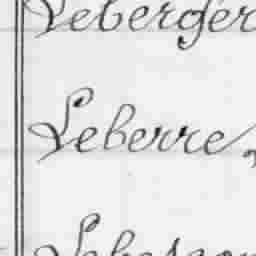 Leberger
Leberre,